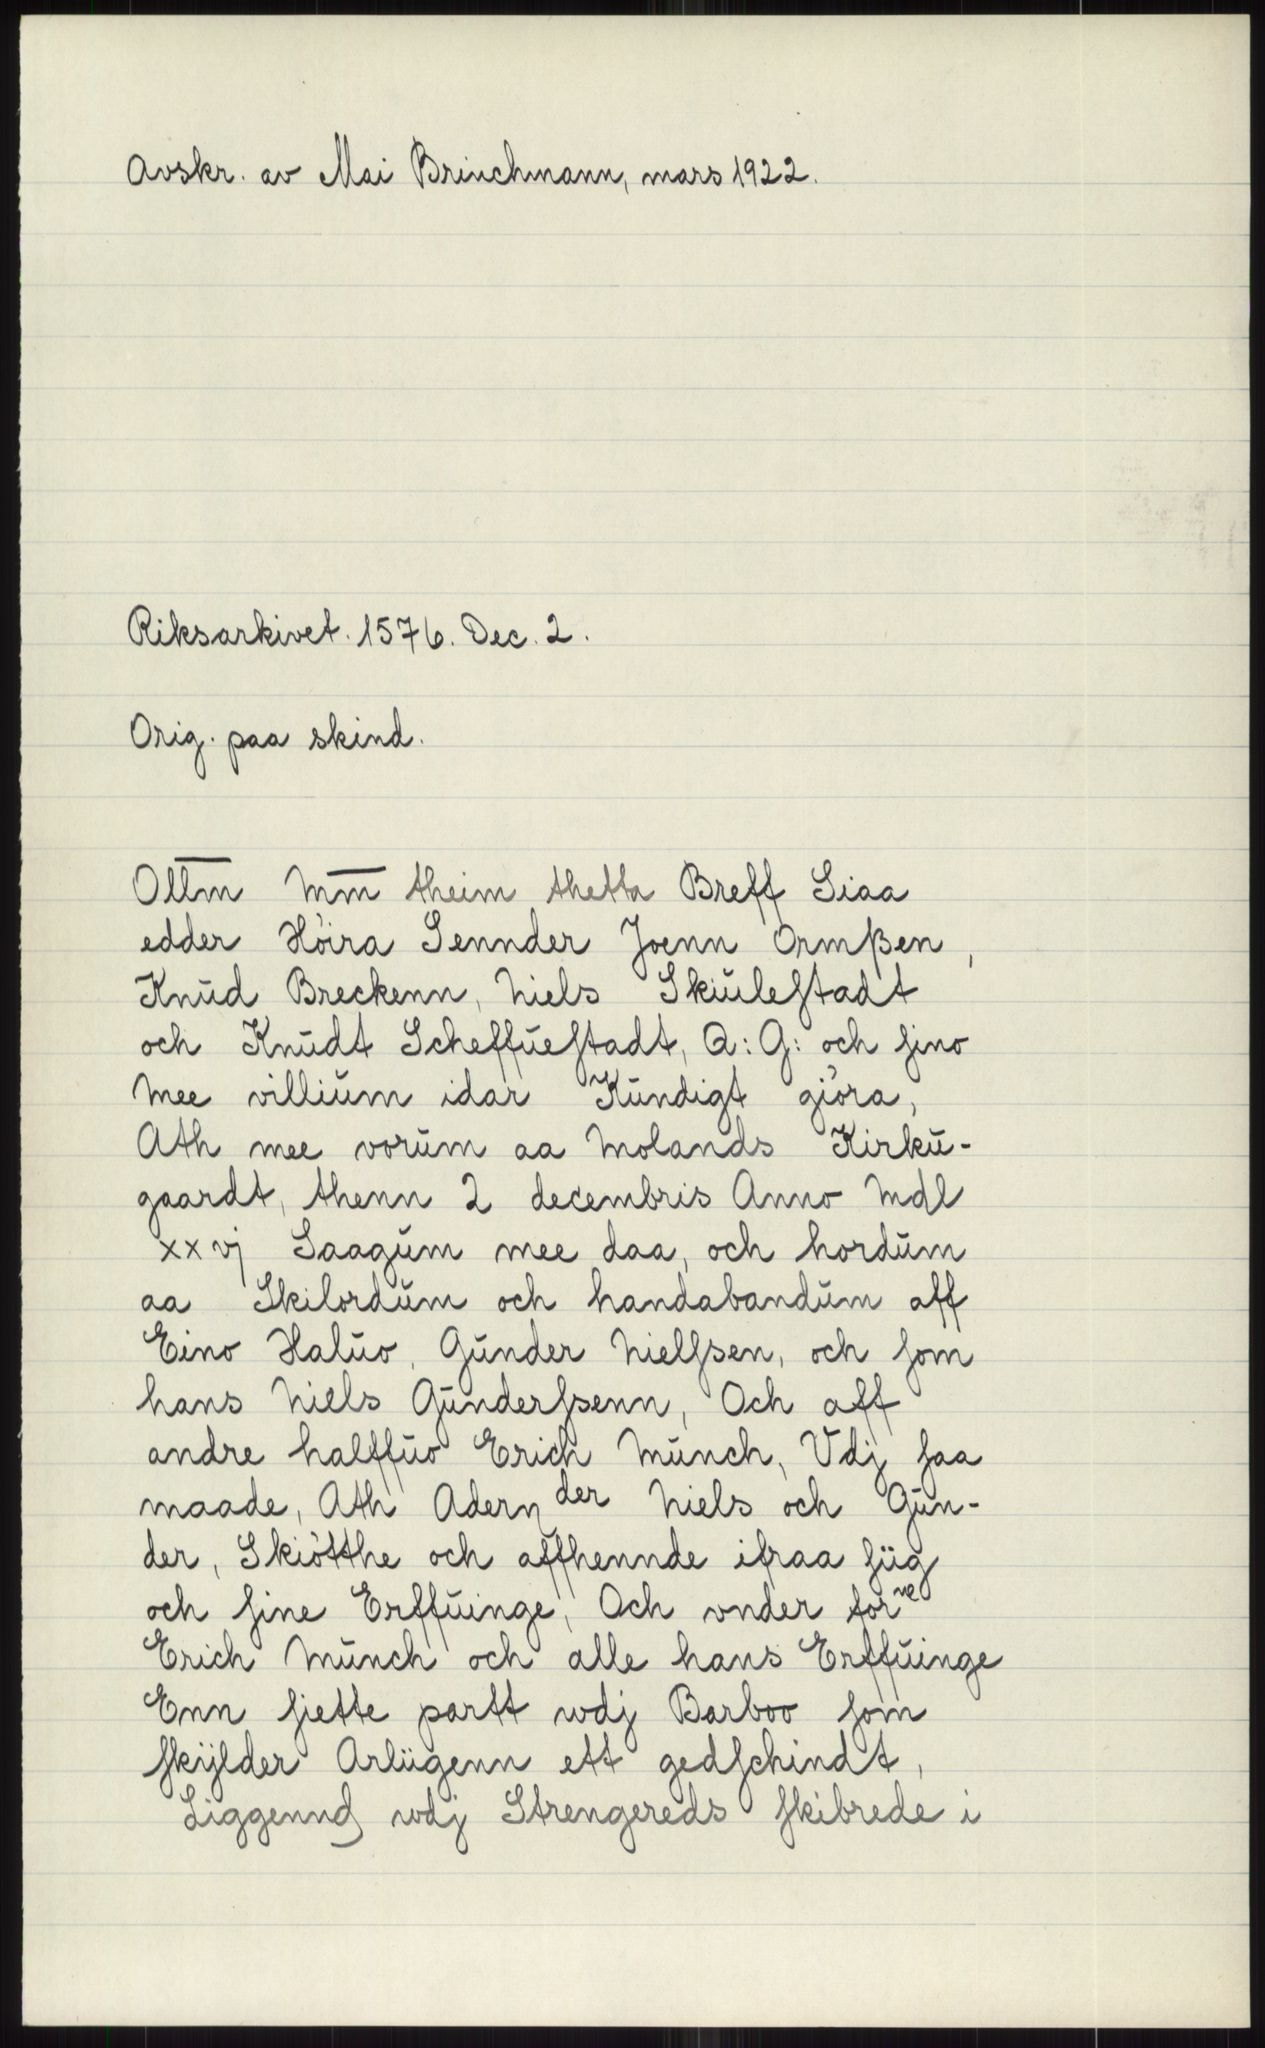 Avskr. av Mai Brinchmann, mars 1922.
Riksarkivet. 1576. Dec. 2.
Orig. paa skind.
Ollm̅ Mm̅ theim thetta Breff Siaa
edder Höira Sennder Joenn Ormßen,
Knŭd Breckenn, Niels Skiŭleſtadt
och Knŭdt Scheffŭeſtadt, Q: G: och ſino
Mee villiŭm idar Kŭndigt giöra,
Ath mee vorŭm aa Molands Kirkŭ-
gaardt, thenn 2 decembris Anno Mdl
xxvj Saagŭm mee daa, och hordŭm
aa Skilordŭm och handabandŭm aff
Eino Halŭo, Gŭnder Nielſsen, och ſom
hans Niels Gŭnderſsenn, Och aff
andre halffŭo Erich Mŭnch, Vdj ſaa
maade, Ath Adernder Niels och Gŭn-
der, Skiötthe och affhennde ifraa ſiig
och ſine Erffŭinge, Och vnder forne
Erich Mŭnch och alle hans Erffŭinge
Enn ſiette partt wdj Barboo ſom
ſkÿlder Arliigenn ett gedſchindt,
Liggennd wdj Strengereds ſkibrede i